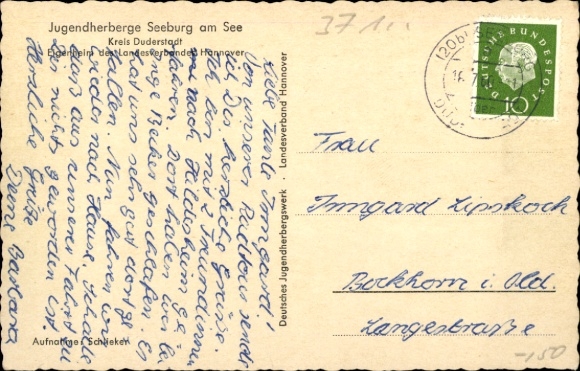 Jugendherberge Seeburg am See
Kreis Duderstadt
Eigenheim des Landesverbandes Hannover
Liebe Tante Irmgard!
Von unserer Radtour sende
ich Dir herzliche Grüße.
Ich bin mit 2 Freundinnen
nach Hildesheim ge-
fahren. Dort haben wir bei
Inge Becker geschlafen. Es
hat uns sehr gut dort ge-
fallen. Nun fahren wir
wieder nach Hause. Schade
daß aus unserer Fahrt mit
Dir nichts geworden ist.
Herzliche Grüße
Deine Barbara
Aufnahme: Schlieker
Deutsches Jugendherbergswerk · Landesverband Hannover
DEUTSCHE BUNDESPOST
10
Frau
Irmgard Lipskoch
Bockhorn i. Old.
Langestraße
37 1
-150